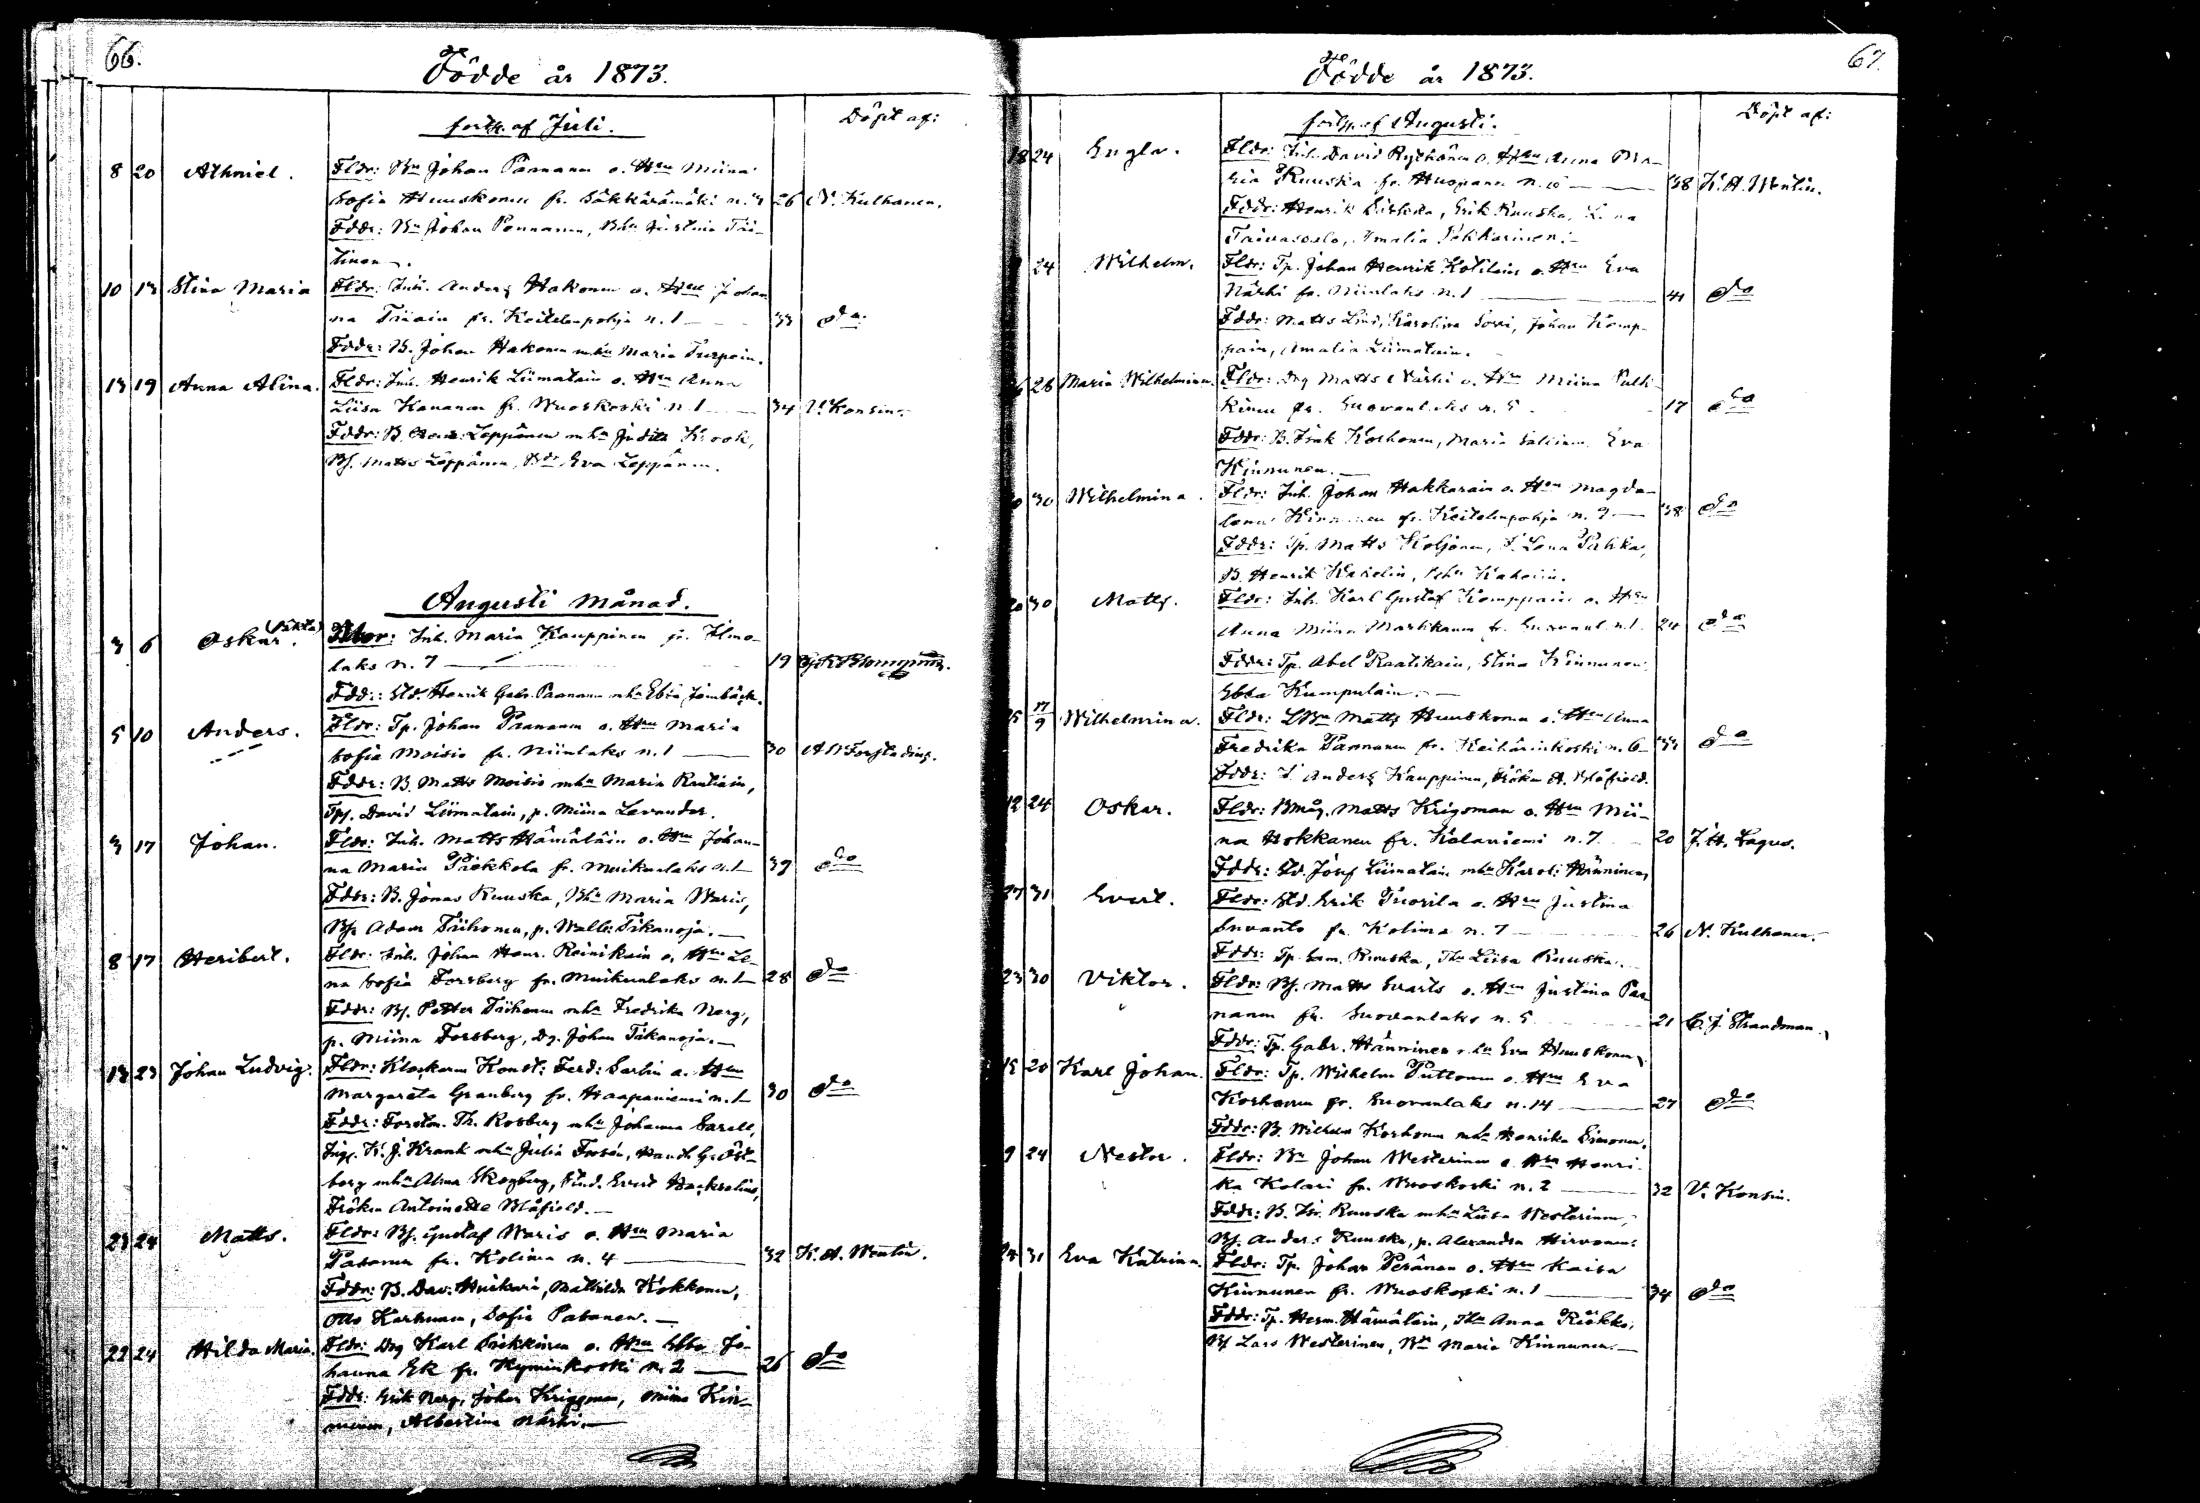 66.
Födde år 1873.
forts. af Juli.
Döpt af:
8 20 Athniel. Fldr: Bn Johan Paananen o. Hu Miina
Sofia Huuskonen fr. Säkkärämäki n. 4 26 N. Kulhanen.
Fddr: Bn Johan Pannanen, Bdr Justina Tii-
tinen.
10 13 Stina Maria Fldr: Inh. Anders Hakonen o. Hu Johan
na Tiiain fr. Keitelepohja n. 1 33 do
Fddr: B. Johan Hakonen mhu Maria Turpein.
13 19 Anna Alina. Fldr: Inh. Henrik Liimatain o. Hu Anna
Liisa Kananen fr. Wuoskoski n. 1 34 V. Konsin.
Fddr: B. Leppänen mhu Judith Krook,
Bs. Matts Leppänen, Bdr Eva Leppänen.
Augusti månad.
3 6 Oskar. (oäkta) Fldr: Inh. Maria Kauppinen fr. Ilmo-
laks n. 7 19 Blomqvist.
Fddr: Std. Henrik Gabr. Paananen mhu Ebba Jernbäck.
5 10 Anders. Fldr: Tp. Johan Paananen o. Hu Maria
Sofia Moisio fr. Niinlaks n. 1 30 A. W. Forstadius.
Fddr: B. Matts Moisio mhu Maria Rautiain,
Tps. David Liimatain, p. Miina Lavander.
3 17 Johan. Fldr: Inh. Matts Hämäläin o. Hu Johan-
na Maria Piokkola fr. Muikunlaks n. 1 39 do
Fddr: B. Jonas Ruuska, Bhu Maria Waris,
Bs. Adam Tiihonen, p. Walb: Tikanoja.
8 17 Heribert. Fldr: Inh. Johan Henr. Reinikain o. Hu Le-
na Sofia Forsberg fr. Muikunlaks n. 1 28 do
Fddr: Bs. Petter Tiihonen mhu Fredrika Norg,
p. Miina Forsberg, Dg. Johan Tikanoja.
13 23 Johan Ludvig. Fldr: Klockaren Konst: Ferd: Sarlin o. Hu
Margareta Granberg fr. Haapaniemi n. 1 30 do
Fddr: Forstm. Th. Rosberg mhu Johanna Sarell,
Ing. K. J. Krank mhu Julia Forsén, Handl. G. Öst-
berg mhu Alma Skogberg, Stud. Evert
Fröken Antoinette Blåfield.
23 24 Matts. Fldr: Bs. Gustaf Waris o. Hu Maria
Pasanen fr. Kolima n. 4 32 K. A. Wentin.
Fddr: B. Dav: Huikuri, Mathilda Kokkonen,
Otto Karhunen, Sofia Pasanen.
22 24 Hilda Maria. Fldr: Dg Karl Piekkinen o. Hu Ebba Jo-
hanna Ek fr. Kyminkoski n. 2 26 do
Fddr: Erik Norg, Johan Krigsman, Miina Kin-
nunen, Albertina Närhi.
67.
Födde år 1873.
forts. af Augusti.
Döpt af:
18 24 Engla. Fldr: Inh. David Rythönen o. Hu Anna Ma-
ria Ruuska fr. Huopana n. 5 38 K. A. Wentin.
Fddr: Henrik, Erik Ruuska, Lena
Taivassalo, Amalia Pekkarinen.
24 Wilhelm. Fldr: Tp. Johan Henrik Kotilain o. Hu Eva
Närhi fr. Niinlaks n. 1 41 do
Fddr: Matts Lind, Karolina Sovi, Johan Komp-
pain, Amalia Liimatain.
26 Maria Wilhelmina. Fldr: Dg Matts Närhi o. Hu Miina Pulk-
kinen fr. Suovanlaks n. 5 17 do
Fddr: B. Isak Korhonen, Maria, Eva
Kinnunen.
30 Wilhelmina. Fldr: Inh. Johan Hakkarain o. Hu Magda-
lena Kinnunen fr. Keitelepohja n. 9 38 do
Fddr: Tp. Matts Koljonen, I. Lena,
B. Henrik Kahelin, Bhu Kahelin.
30 Matts. Fldr: Inh. Karl Gustaf Komppain o. Hu
Anna Miina Martikanen fr. Suovanl. n. 1 24 do
Fddr: Tp. Abel Raatikain, Stina Kinnunen,
Ebba Kumpulain.
17/9 Wilhelmina. Fldr: LBn Matts Huuskonen o. Hu Anna
Fredrika Paananen fr. Keihärinkoski n. 6 33 do
Fddr: I. Anders Kauppinen, Fröken A. Blåfield.
12 24 Oskar. Fldr: Bmåg. Matts Krigsman o. Hu Mii-
na Hokkanen fr. Kalaniemi n. 7 20 J. H. Lagus.
Fddr: Std. Josef Liimatain mhu Karol: Hänninen,
27 31 Evert. Fldr: Std. Erik Tuorila o. Hu Justina
Suvanto fr. Kolima n. 7 26 N. Kulhanen.
Fddr: Tp. Sam. Ruuska, Thu Liisa Ruuska.
23 30 Viktor. Fldr: Bs. Matts Evarts o. Hu Justina Paa-
nanen fr. Suovanlaks n. 5 21 C. J. Strandman.
Fddr: Tp. Gabr. Hänninen mhu Eva Huuskonen,
15 20 Karl Johan. Fldr: Tp. Wilhelm Puttonen o. Hu Eva
Korhonen fr. Suovanlaks n. 14 27 do
Fddr: B. Wilhelm Korhonen mhu Henrika Simonen.
9 24 Nestor. Fldr: Bn Johan Westerinen o. Hu Henri-
ka Kolari fr. Wuoskoski n. 2 32 V. Konsin.
Fddr: B. Isr. Ruuska mhu Liisa Westerinen,
Bs. Anders Ruuska, p. Alexandra Hirvonen.
24 31 Eva Katrina. Fldr: Tp. Johan Peränen o. Hu Kaisa
Kinnunen fr. Wuoskoski n. 1 34 do
Fddr: Tp. Herm. Hämäläin, Thu Anna Riökko,
Bs Lars Westerinen, Bdr Maria Kinnunen.